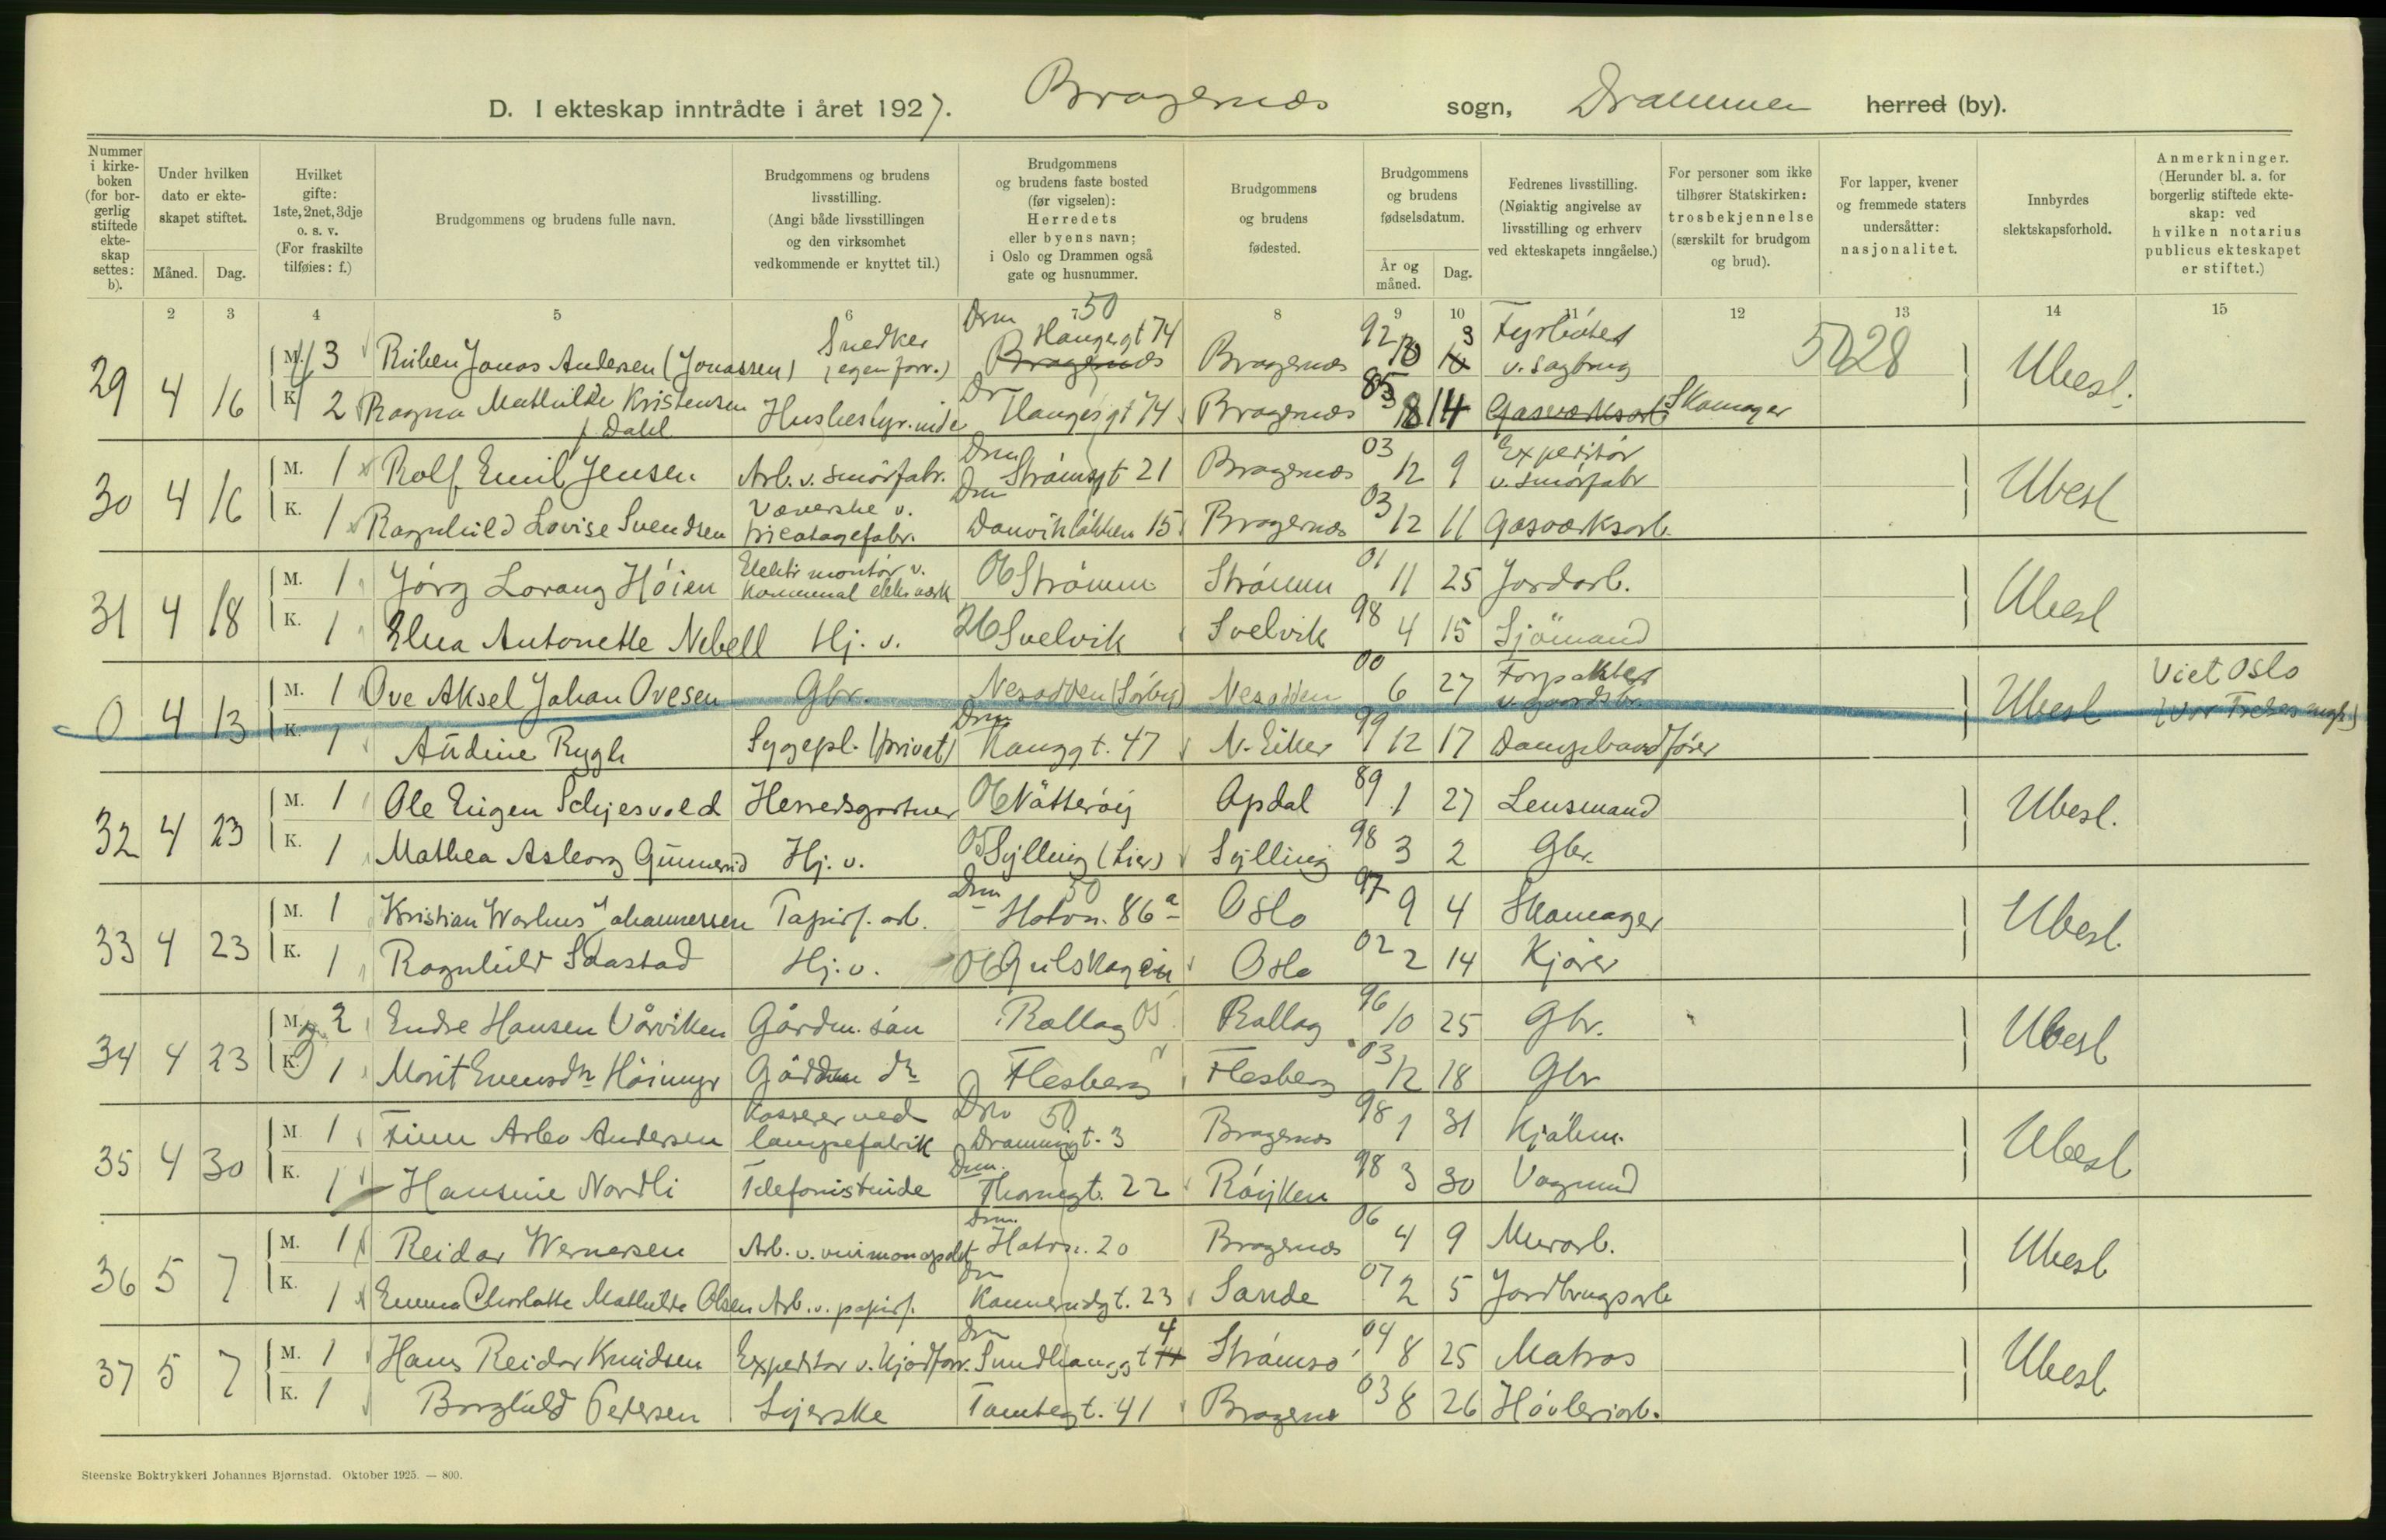 D. I ekteskap inntrådte i året 1927. Bragernæs sogn, Drammen herred (by).
Nummer i kirkeboken (for borgerlig stiftede ekteskap settes: b).
Under hvilken dato er ekteskapet stiftet.
Måned. Dag.
Hvilket gifte: 1ste, 2net, 3dje o. s. v. (For fraskilte tilføies: f.)
Brudgommens og brudens fulle navn.
Brudgommens og brudens livsstilling. (Angi både livsstillingen og den virksomhet vedkommende er knyttet til.)
Brudgommens og brudens faste bosted (før vigselen): Herredets eller byens navn; i Oslo og Drammen også gate og husnummer.
Brudgommens og brudens fødested.
Brudgommens og brudens fødselsdatum.
År og måned. Dag.
Fedrenes livsstilling. (Nøiaktig angivelse av livsstilling og erhverv ved ekteskapets inngåelse.)
For personer som ikke tilhører Statskirken: trosbekjennelse (særskilt for brudgom og brud).
For lapper, kvener og fremmede staters undersåtter: nasjonalitet.
Innbyrdes slektskapsforhold.
Anmerkninger. (Herunder bl. a. for borgerlig stiftede ekteskap: ved hvilken notarius publicus ekteskapet er stiftet.)
2 3 4 5 6 7 8 9 10 11 12 13 14 15
29 4 16 M. 3 Ruben Jonas Andersen (Jonassen) Snedker (egen forr.) Drm 50 Haugesgt 74 Bragernæs Bragernæs 92 10 3 Fyrbøter v. Sagbrug 5028 Ubesl.
K. 2 Ragna Mathilde Kristensen f. Dahl Husbestyr.inde Dr Haugesgt 74 Bragernæs 85 8 14 Gasværksarb Skomager
30 4 16 M. 1 Rolf Emil Jensen Arb. v. smörfabr. Drm Strömsgt 21 Bragernæs 03 12 9 Expeditör v. smörfabr Ubesl
K. 1 Ragnhild Lovise Svendsen Væverske v. tricotagefabr. Drm Danvikløkken 15 Bragernæs 03 12 11 Gasværksarb.
31 4 18 M. 1 Jörg Lorang Höien Elektr montör v. Kommunal elektr værk 06 Strömm Strömm 01 11 25 Jordarb. Ubesl
K. 1 Elna Antonette Nebell Hj. v. 26 Svelvik Svelvik 98 4 15 Sjömand
0 4 13 M. 1 Ove Aksel Johan Ovesen Gbr. Nesodden Nesodden 00 6 27 Forpakter v. gaardsbr. Ubesl Viet Oslo
K. 1 Audine Rygh Sygepl. (privat) Drm Kauggt. 47 N. Eiker 99 12 17 Dampbaadförer
32 4 23 M. 1 Ole Eugen Schjesvold Herredsgartner 06 Nötteröy Opdal 89 1 27 Lensmand Ubesl.
K. 1 Mathea Asborg Gunnerud Hj. v. 05 Sylling (Lier) Sylling 98 3 2 Gbr.
33 4 23 M. 1 Kristian Warhus Johannessen Papirf. arb. Drm 50 Hotvn. 86a Oslo 97 9 4 Skomager Ubesl.
K. 1 Ragnhild Saastad Hj. v. 06 Gulskogen Oslo 02 2 14 Kjörer
34 4 23 M. 2 Endre Hansen Vårviken Gårdm. sön Rollag 05 Rollag 96 10 25 Gbr. Ubesl
K. 1 Marit Evensdtr Höimyr Gårdm dtr Flesberg Flesberg 03 12 18 Gbr
35 4 30 M 1 Finn Arbo Andersen Kasserer ved lampefabrik Drm 50 Drammensgt. 3 Bragernæs 98 1 31 Kjöbm. Ubesl
K. 1 Hansine Nordli Telefonistinde Drm. Thornegt. 22 Röyken 98 3 30 Vognmd
36 5 7 M. 1 Reidar Wernersen Arb. v. vinmonopolet Drm. Hotvn. 20 Bragernæs 06 4 9 Murarb. Ubesl
K. 1 Emma Charlotte Mathilde Olsen Arb. v. papirf. Drm Konnerudgt. 23 Sande 07 2 5 Jordbrugsarb
37 5 7 M. 1 Hans Reidar Knudsen Expeditör v. Kjödforr. Drm Sundhaugsgt 4 Strömsö 04 8 25 Matros Ubesl
K. 1 Borghild Pedersen Syerske Tomtegt. 41 Bragernæs 03 8 26 Hövleriarb.
Steenske Boktrykkeri Johannes Bjørnstad. Oktober 1925. — 800.